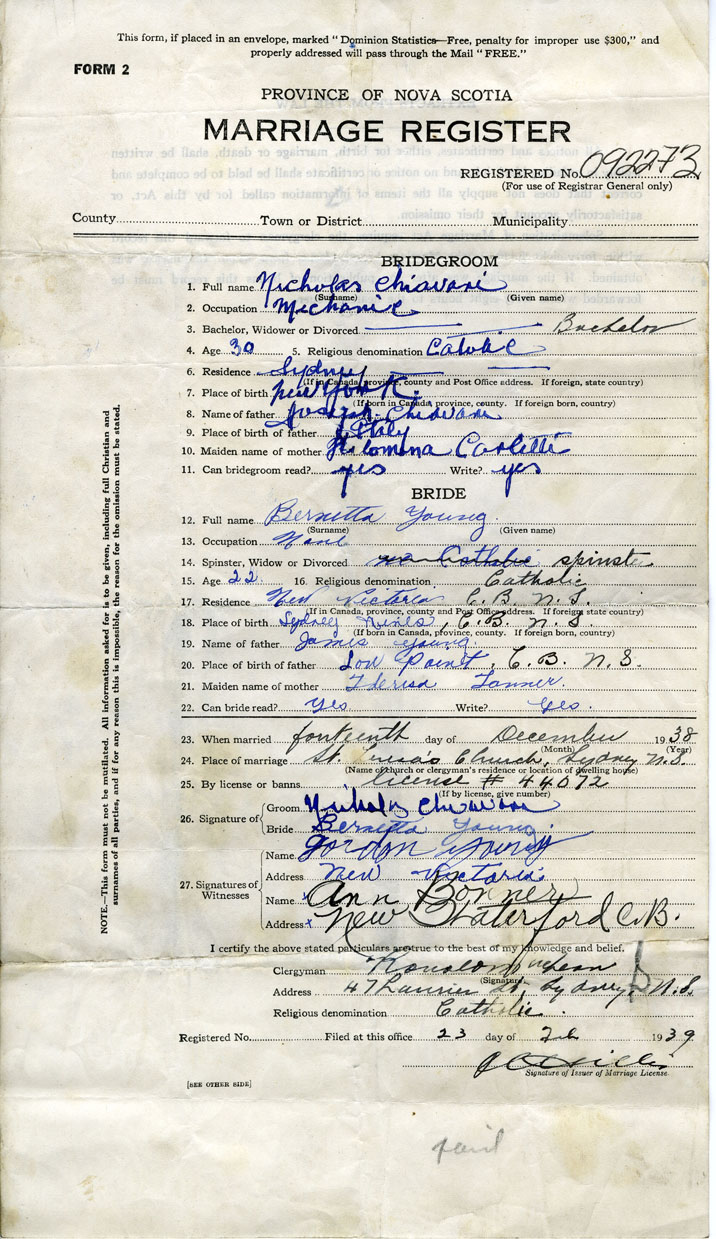 This form, if placed in an envelope, marked "Dominion Statistics—Free, penalty for improper use $300," and
properly addressed will pass through the Mail "FREE."
FORM 2
PROVINCE OF NOVA SCOTIA
MARRIAGE REGISTER
REGISTERED No. 092273
(For use of Registrar General only)
County Town or District Municipality
BRIDEGROOM
1. Full name Nicholas Chiavari
(Surname) (Given name)
2. Occupation Mechanic
3. Bachelor, Widower or Divorced Bachelor
4. Age 30 5. Religious denomination Catolic
6. Residence Sydney
(If in Canada, province, county and Post Office address. If foreign, state country)
7. Place of birth new york.
(If in Canada, province, county. If foreign born, country)
8. Name of father Joseph Chiavari
9. Place of birth of father Italy
10. Maiden name of mother Filomena
11. Can bridegroom read? yes Write? yes
BRIDE
12. Full name Bernetta Young
(Surname) (Given name)
13. Occupation None
14. Spinster, Widow or Divorced Catholic spinster
15. Age 22 16. Religious denomination Catholic
17. Residence New Victoria C.B. N.S.
(If in Canada, province, county and Post Office address. If foreign, state country)
18. Place of birth Sydney Mines, C.B. N.S.
(If born in Canada, province, county. If foreign born, country)
19. Name of father James Young
20. Place of birth of father Low Point, C.B. N.S.
21. Maiden name of mother Theresa Tanner.
22. Can bride read? Yes Write? Yes.
23. When married fourteenth day of December 1938
(Month) (Year)
24. Place of marriage St. Church, Sydney N.S.
(Name of church or clergyman's residence or location of dwelling house)
25. By license or banns License # 44072
(If by license, give number)
26. Signature of Groom Nicholas Chiavari
Bride Bernetta Young
27. Signatures of Witnesses
Name Gordon Young
Address New Victoria
Name x Ann Bonner
Address x New Waterford C.B.
I certify the above stated particulars are true to the best of my knowledge and belief.
Clergyman
(Signature)
Address 47 Laurier St, Sydney, N.S.
Religious denomination Catholic.
Registered No. Filed at this office 23 day of Feb 1939
Signature of Issuer of Marriage License.
[SEE OTHER SIDE]
paid
NOTE.—This form must not be mutilated. All information asked for is to be given, including full Christian and
surnames of all parties, and if for any reason this is impossible, the reason for the omission must be stated.